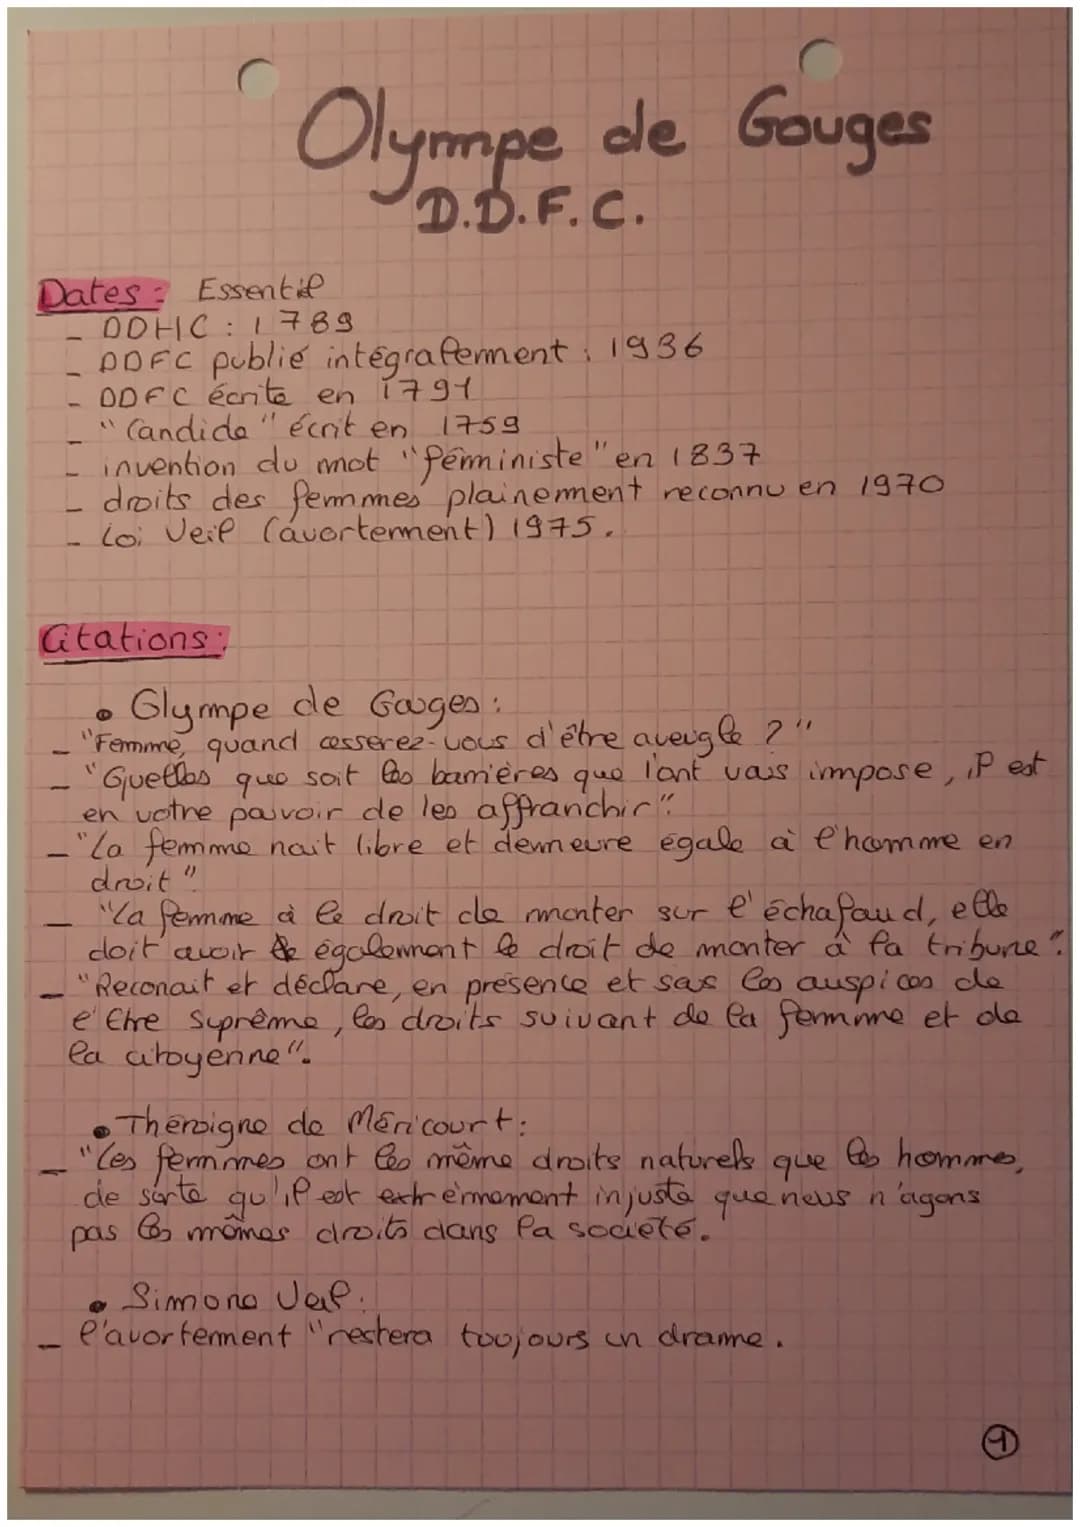 Olympe de Gouges
D.D.F.C.
Dates : Essentiel
- DDHC : 1789
- DDFC publié intégralement : 1936
- DDFC écrite en 1791
- "Candide" écrit en 1759
- invention du mot "féministe" en 1837
- droits des femmes plainement reconnu en 1970
- Loi Veil (avortement) 1975.
Citations :
• Olympe de Gouges :
- "Femme, quand cesserez-vous d'être aveugle ?"
- "Quelles que soit les barrières que l'ont vous impose, il est
en votre pouvoir de les affranchir".
- "La femme nait libre et demeure égale à l'homme en
droit".
- "La femme à le droit de monter sur l'échafaud, elle
doit avoir également le droit de monter à la tribune".
- "Reconait et déclare, en présence et sous les auspices de
l'Etre Suprême, les droits suivant de la femme et de
la citoyenne".
• Théroigne de Méricourt :
- "Les femmes ont les même droits naturels que les hommes,
de sorte qu'il est extrêmement injuste que nous n'ayons
pas les mêmes droits dans la société.
• Simone Veil :
- l'avortement "restera toujours un drame.
1